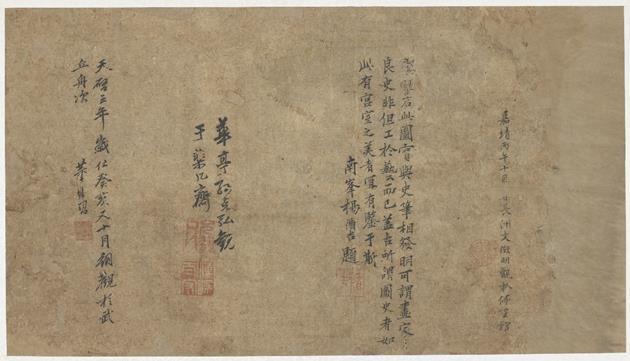 嘉靖丙午十月 日長洲文徵明觀於停雲館
此圖實與史筆相發明可謂畫
良史非但工於藝而已蓋古所謂圖史者如
此有宮室之美者宜有鑒于斯
南峯楊循吉題
華亭孫克弘觀
于 齋
天啓三年歲在癸亥又十月朔觀於武
丘舟次 董其昌